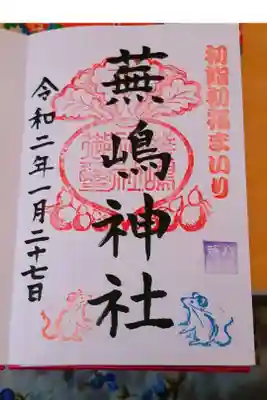 初詣初福まいり
蕪嶋神社
令和二年一月二十七日